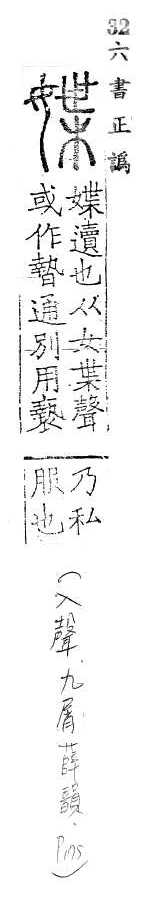 32
六書正譌
媟
媟瀆也从女枼聲
或作暬通別用褻
乃私
服也
(入聲.九屑薛韻.